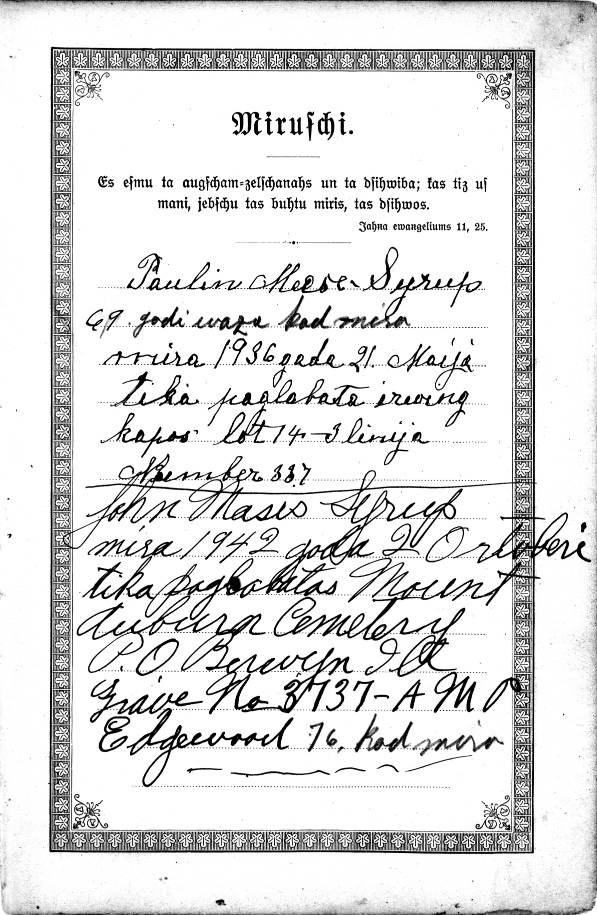 Miruſchi.
Es eſmu ta augſcham=zelſchanahs un ta dſihwiba; kas tiz uſ
mani, jebſchu tas buhtu miris, tas dſihwos.
Jahna ewangeliums 11, 25.
Paulin Syrup
69 godi waza kad mira
mira 1936 gada 21. Maija
tika paglabata irwing
kapos lot 14-3 linija
Nember 337
John Masis Syrup
mira 1942 goda 2 Ortoberi
tika pagloabatas Mount
Auburn Cemetery
P.O Berwyn Ill
Grave No 3737-A M P
Edgewood 76, kad mira